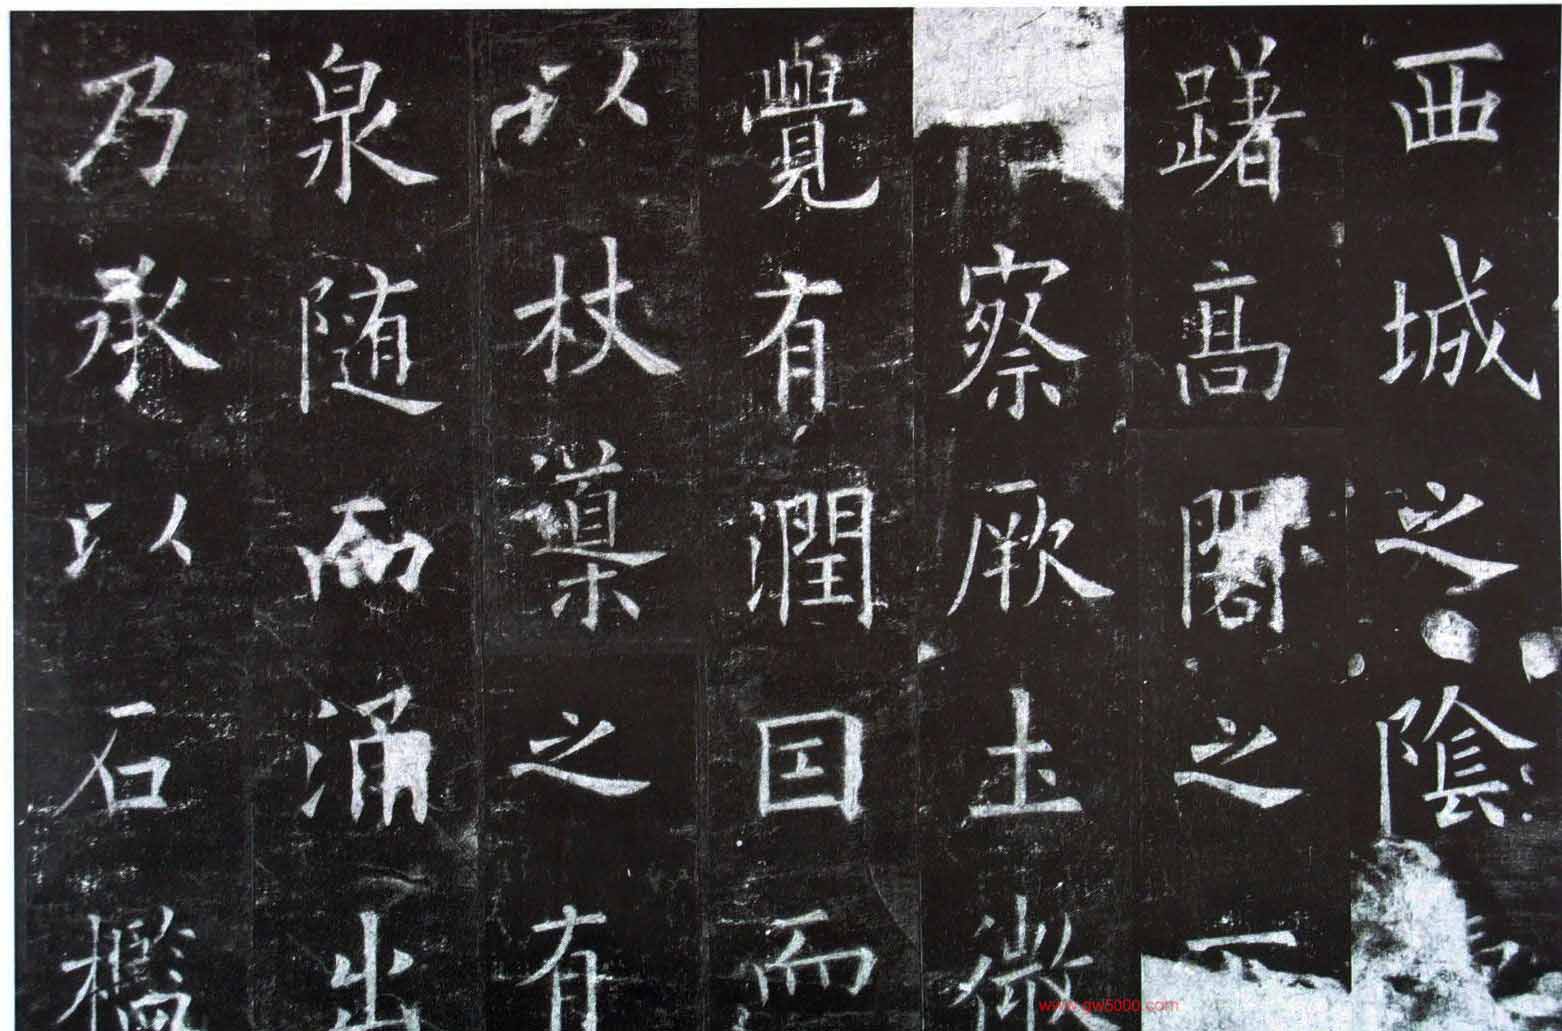 西城之陰
躇高閣之下
察厥土微
覺有潤因而
以杖導之有
泉随而涌出
乃承以石檻
www.gw5000.com